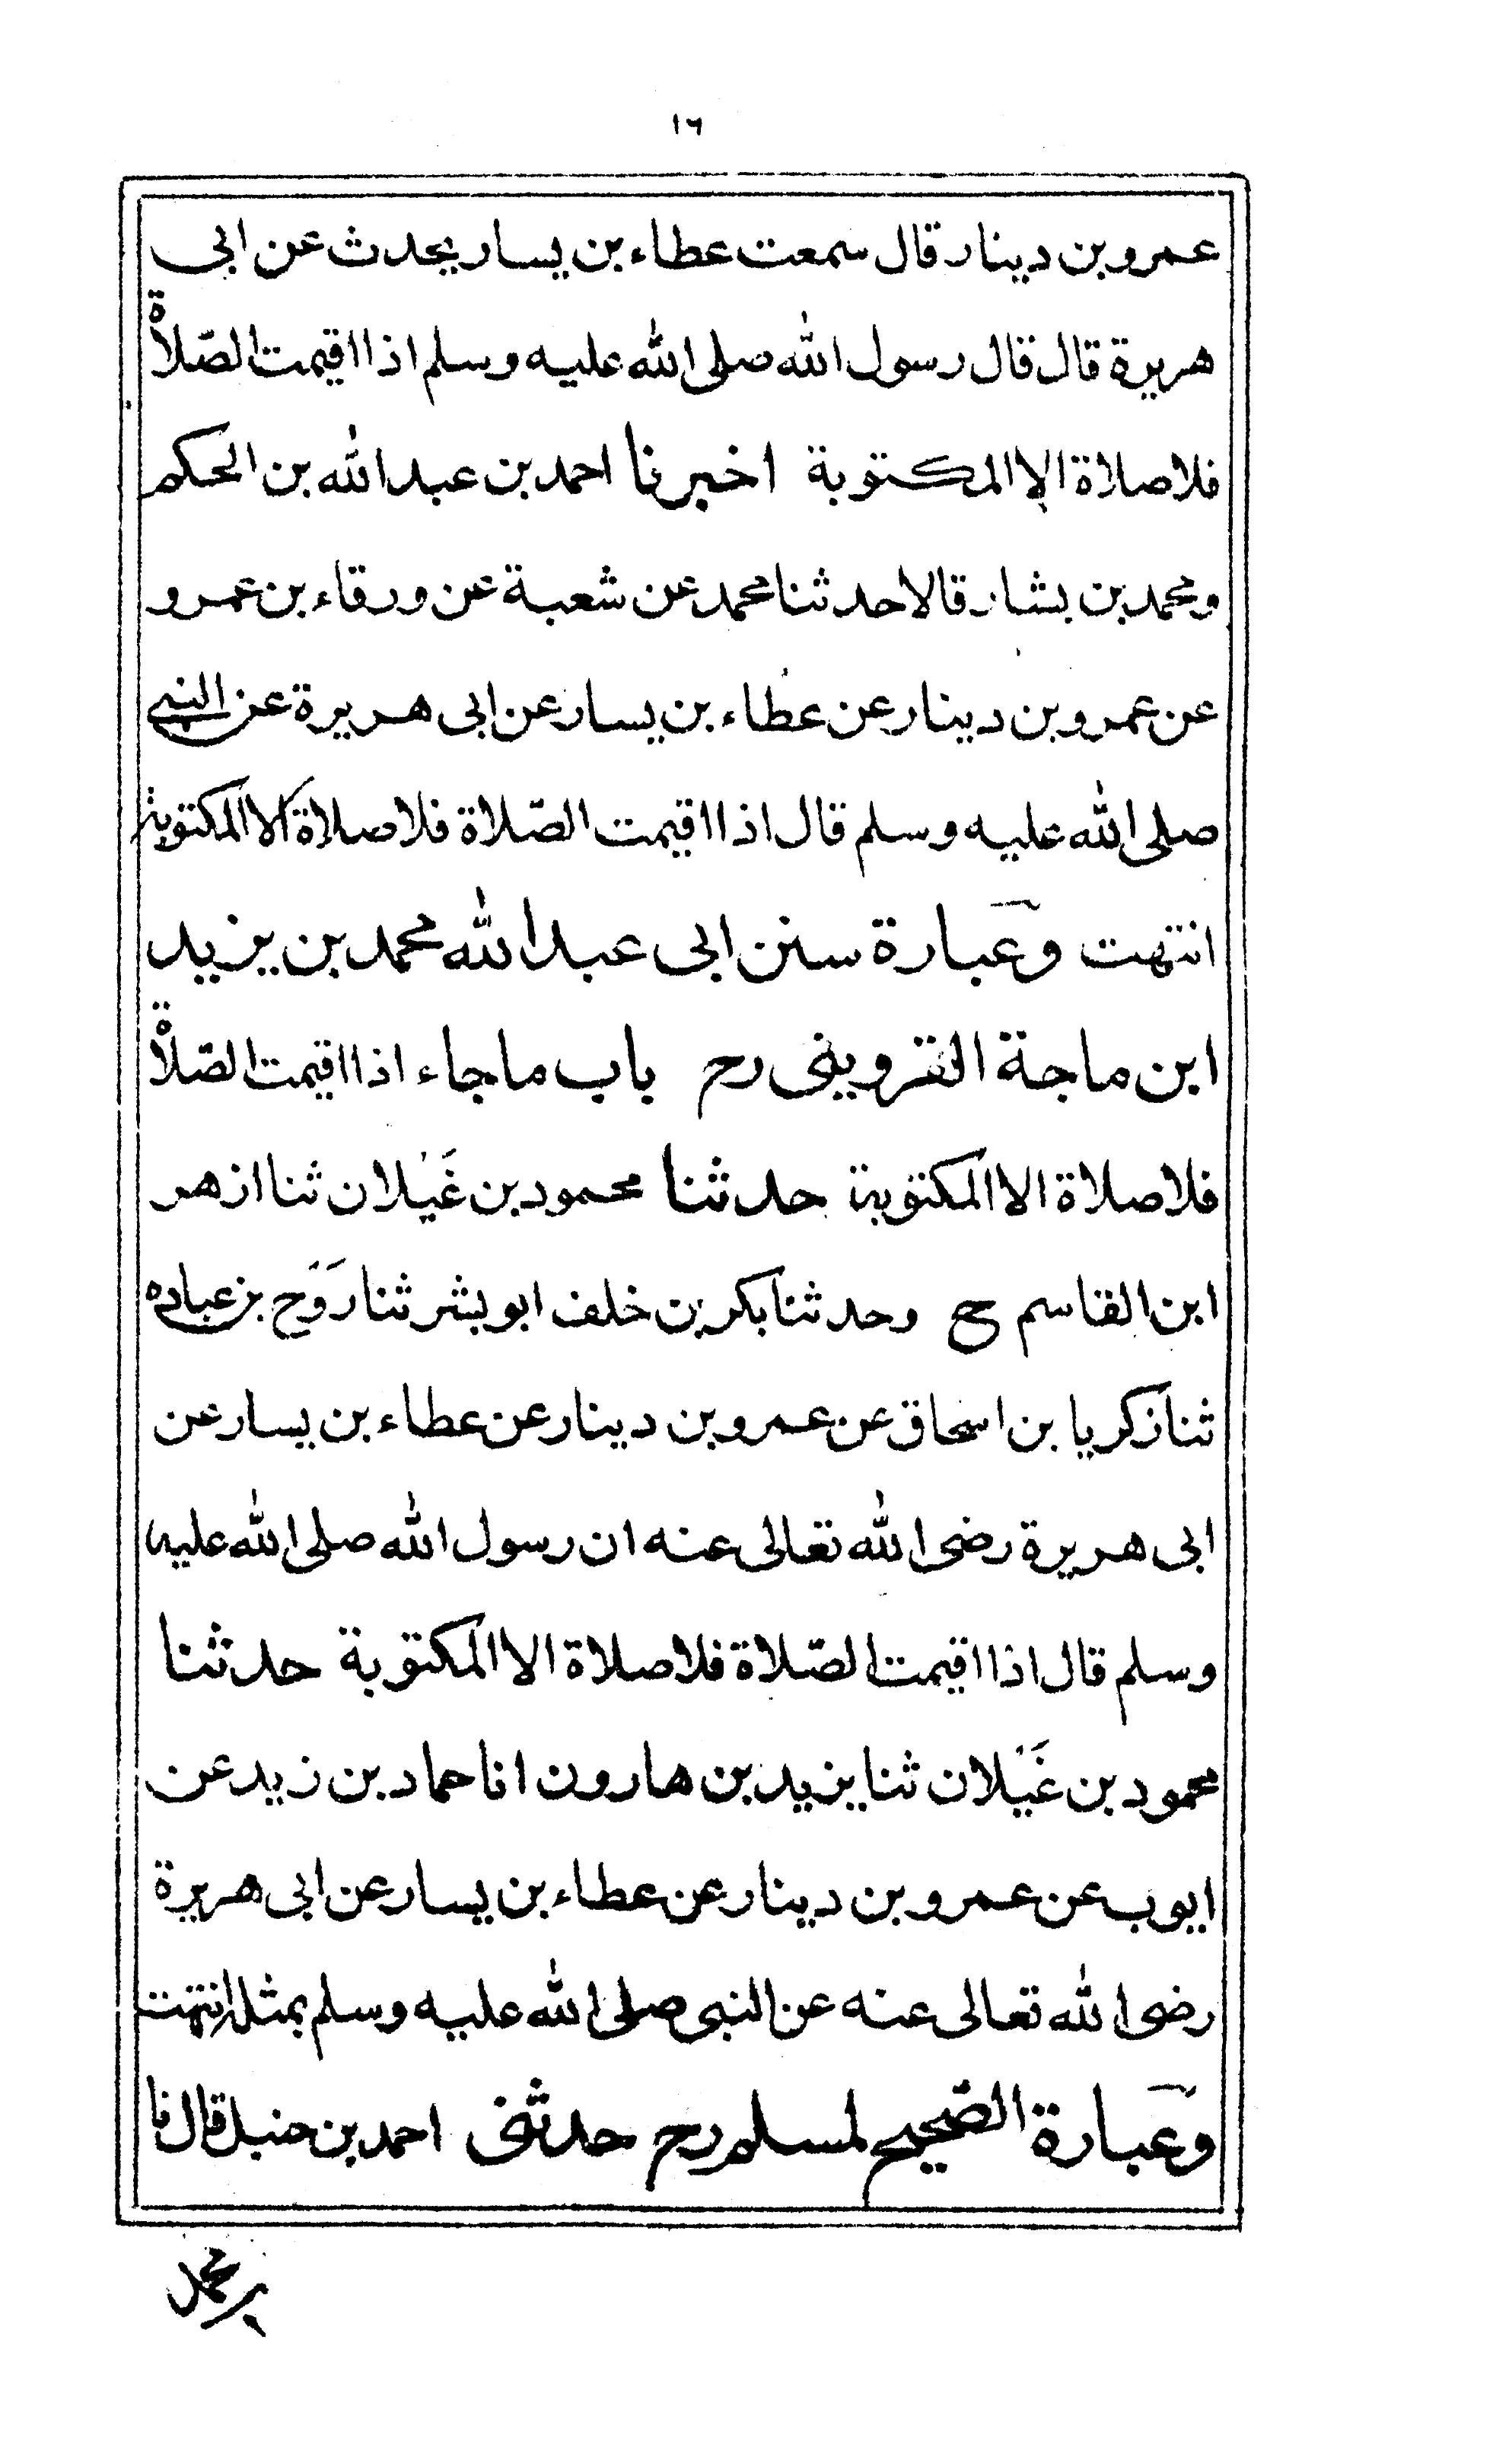 ١٦
عمرو بن دينار قال سمعت عطاء بن يسار يحدث عن ابى
هريرة قال قال رسول الله صلى الله عليه وسلم اذا اقيمت الصّلاة
فلا صلاة الا المكتوبة اخبرنا احمد بن عبد الله بن الحكم
ومحمد بن بشار قالا حدثنا محمد عن شعبة عن ورقاء بن عمرو
عن عمرو بن دينار عن عطاء بن يسار عن ابى هريرة عن النبى
صلى الله عليه وسلم قال اذا اقيمت الصّلاة فلا صلاة الا المكتوبة
انتهت وعبارة سنن ابى عبد الله محمد بن يزيد
ابن ماجة القزوينى رح باب ما جاء اذا اقيمت الصّلاة
فلا صلاة الا المكتوبة حدثنا محمود بن غَيْلان ثنا ازهر
ابن القاسم ح وحدثنا بكر بن خلف ابو بشر ثنا رَوْح بن عباده
ثنا زكريا بن اسحاق عن عمرو بن دينار عن عطاء بن يسار عن
ابى هريرة رضى الله تعالى عنه ان رسول الله صلى الله عليه
وسلم قال اذا اقيمت الصّلاة فلا صلاة الا المكتوبة حدثنا
محمود بن غَيْلان ثنا يزيد بن هارون انا حماد بن زيد عن
ايوب عن عمرو بن دينار عن عطاء بن يسار عن ابى هريرة
رضى الله تعالى عنه عن النبى صلى الله عليه وسلم بمثله انتهت
وعبارة الصّحيح لمسلم رح حدثنى احمد بن حنبل قال نا
محمد